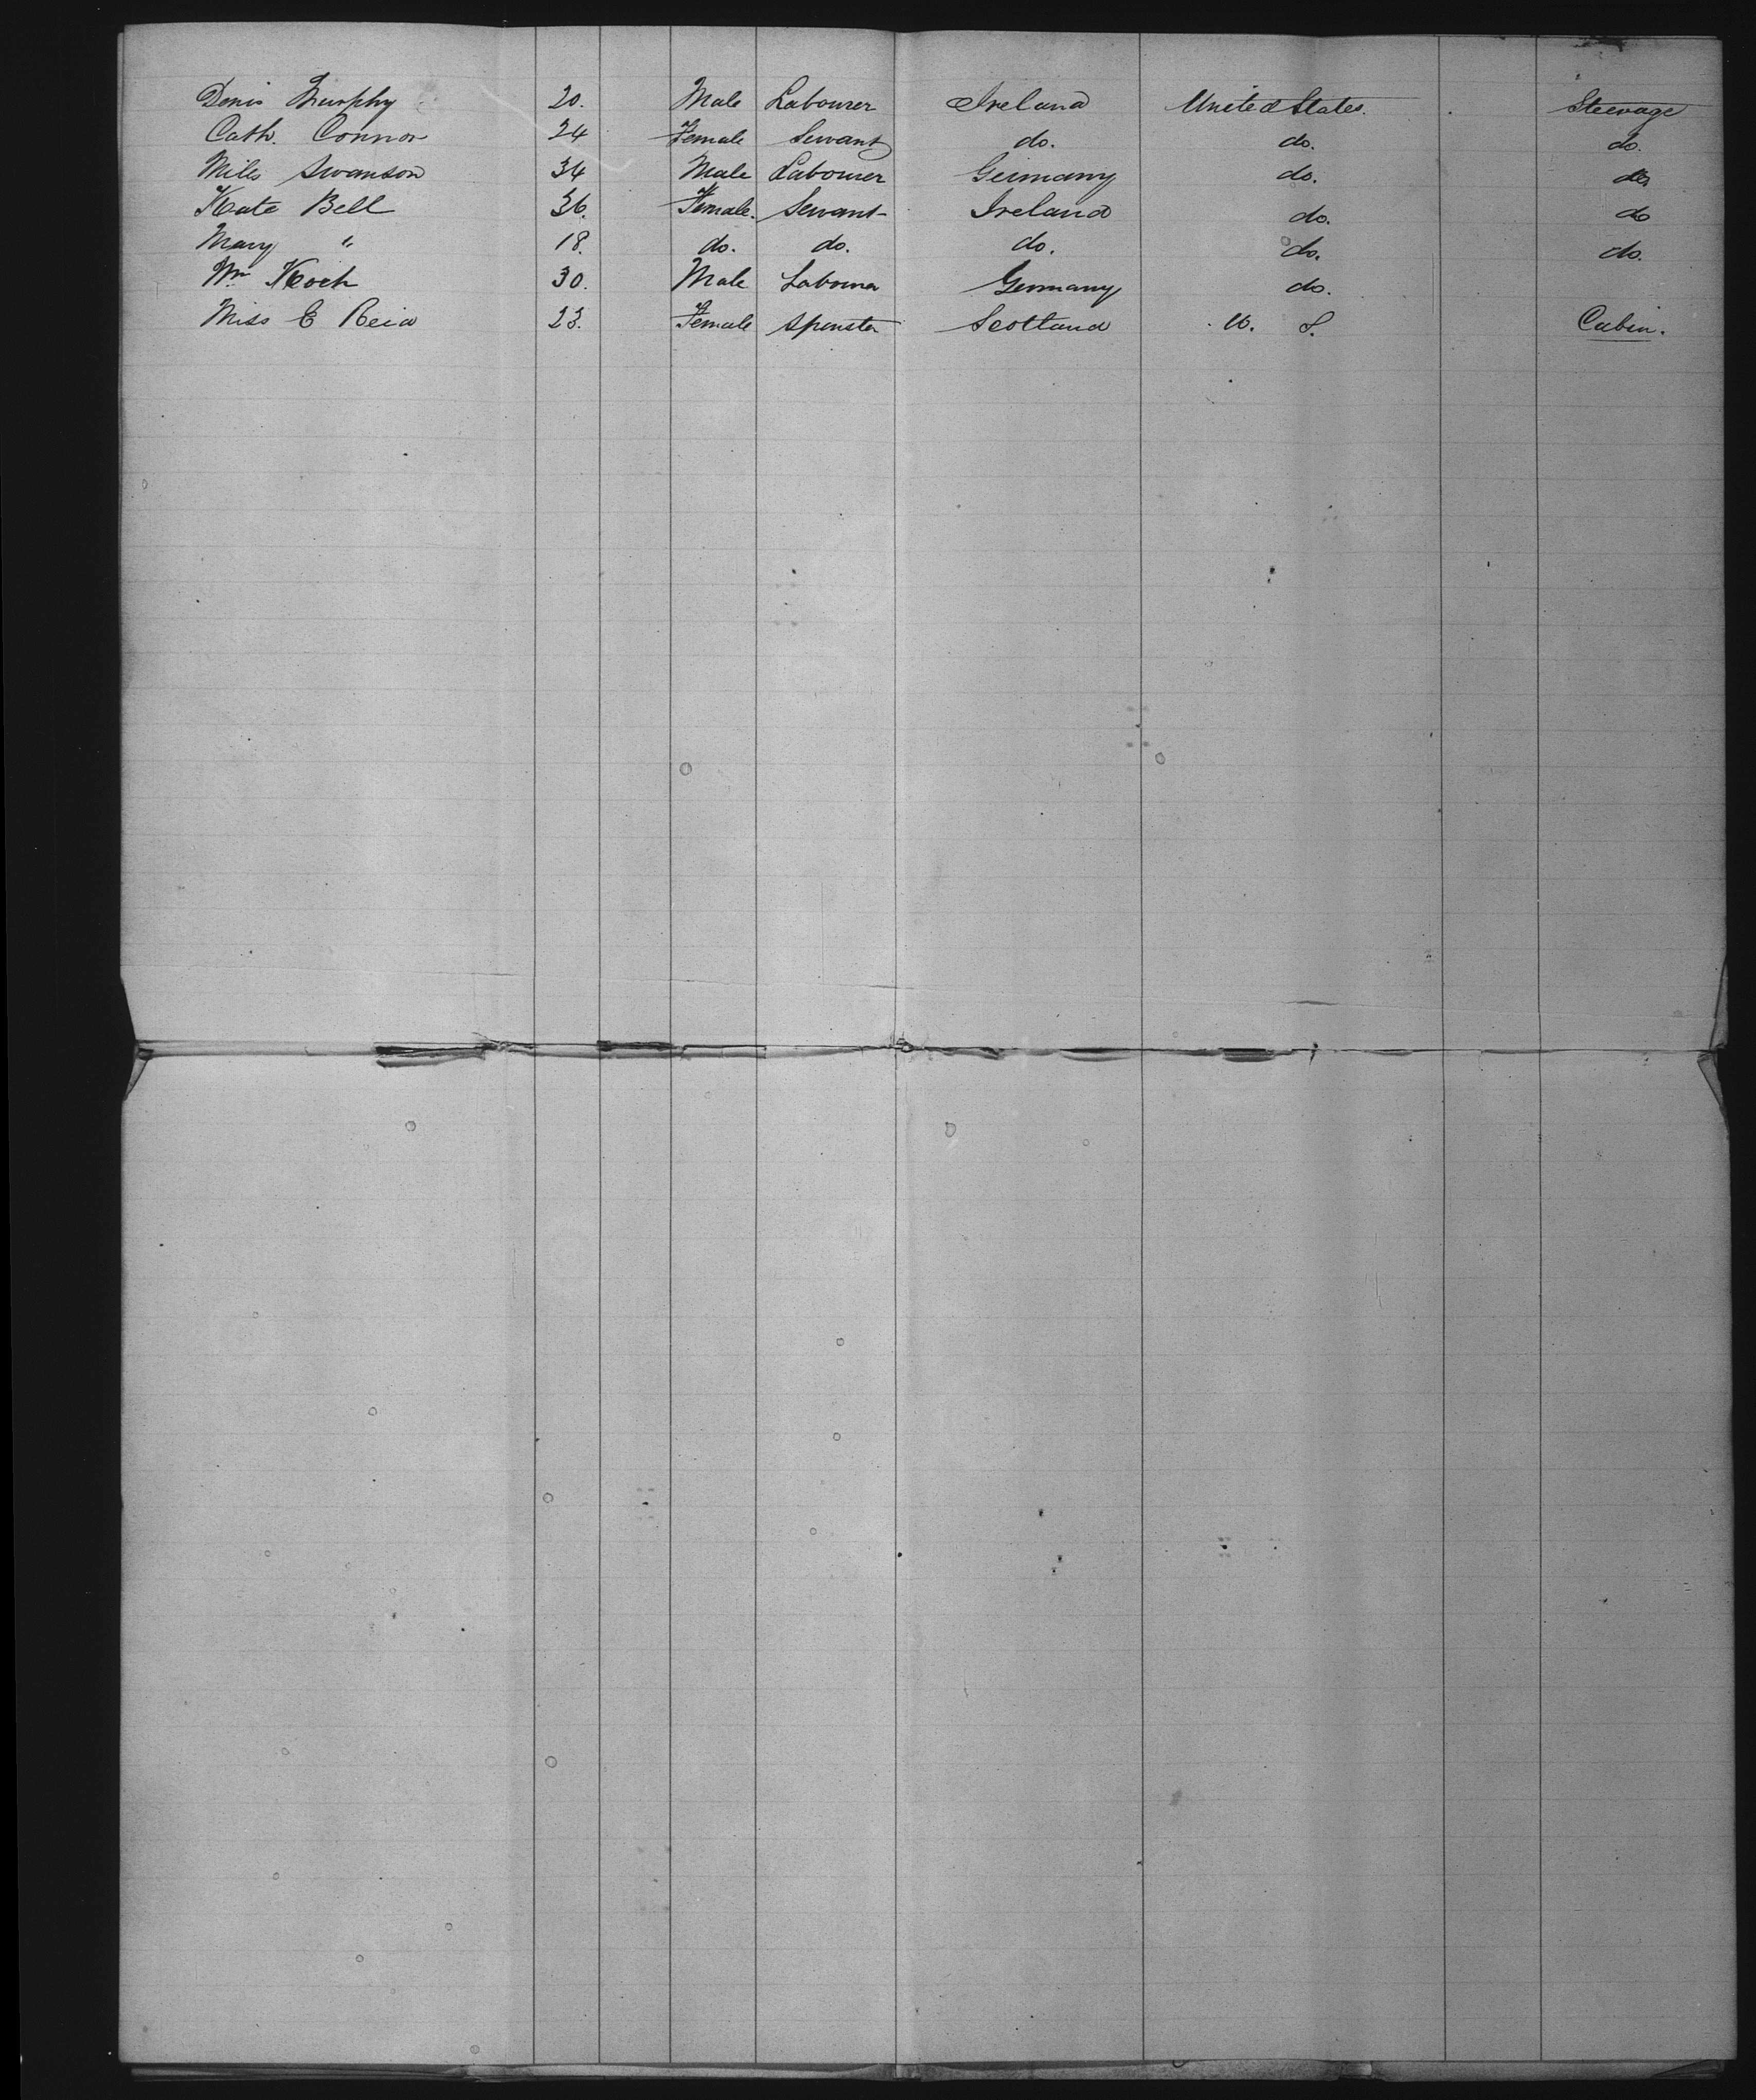 Denis Murphy 20. Male Labourer Ireland United States. Steerage
Cath. Connor 24 Female Servant do. do. do.
Mills Swanson 34 Male Labourer Germany do. do
Kate Bell 36. Female. Servant Ireland do. do
Mary " 18. do. do. do. do. do.
Wm Koch 30. Male Labourer Germany do.
Miss E Reid 23. Female Spinster Scotland U. S. Cabin.